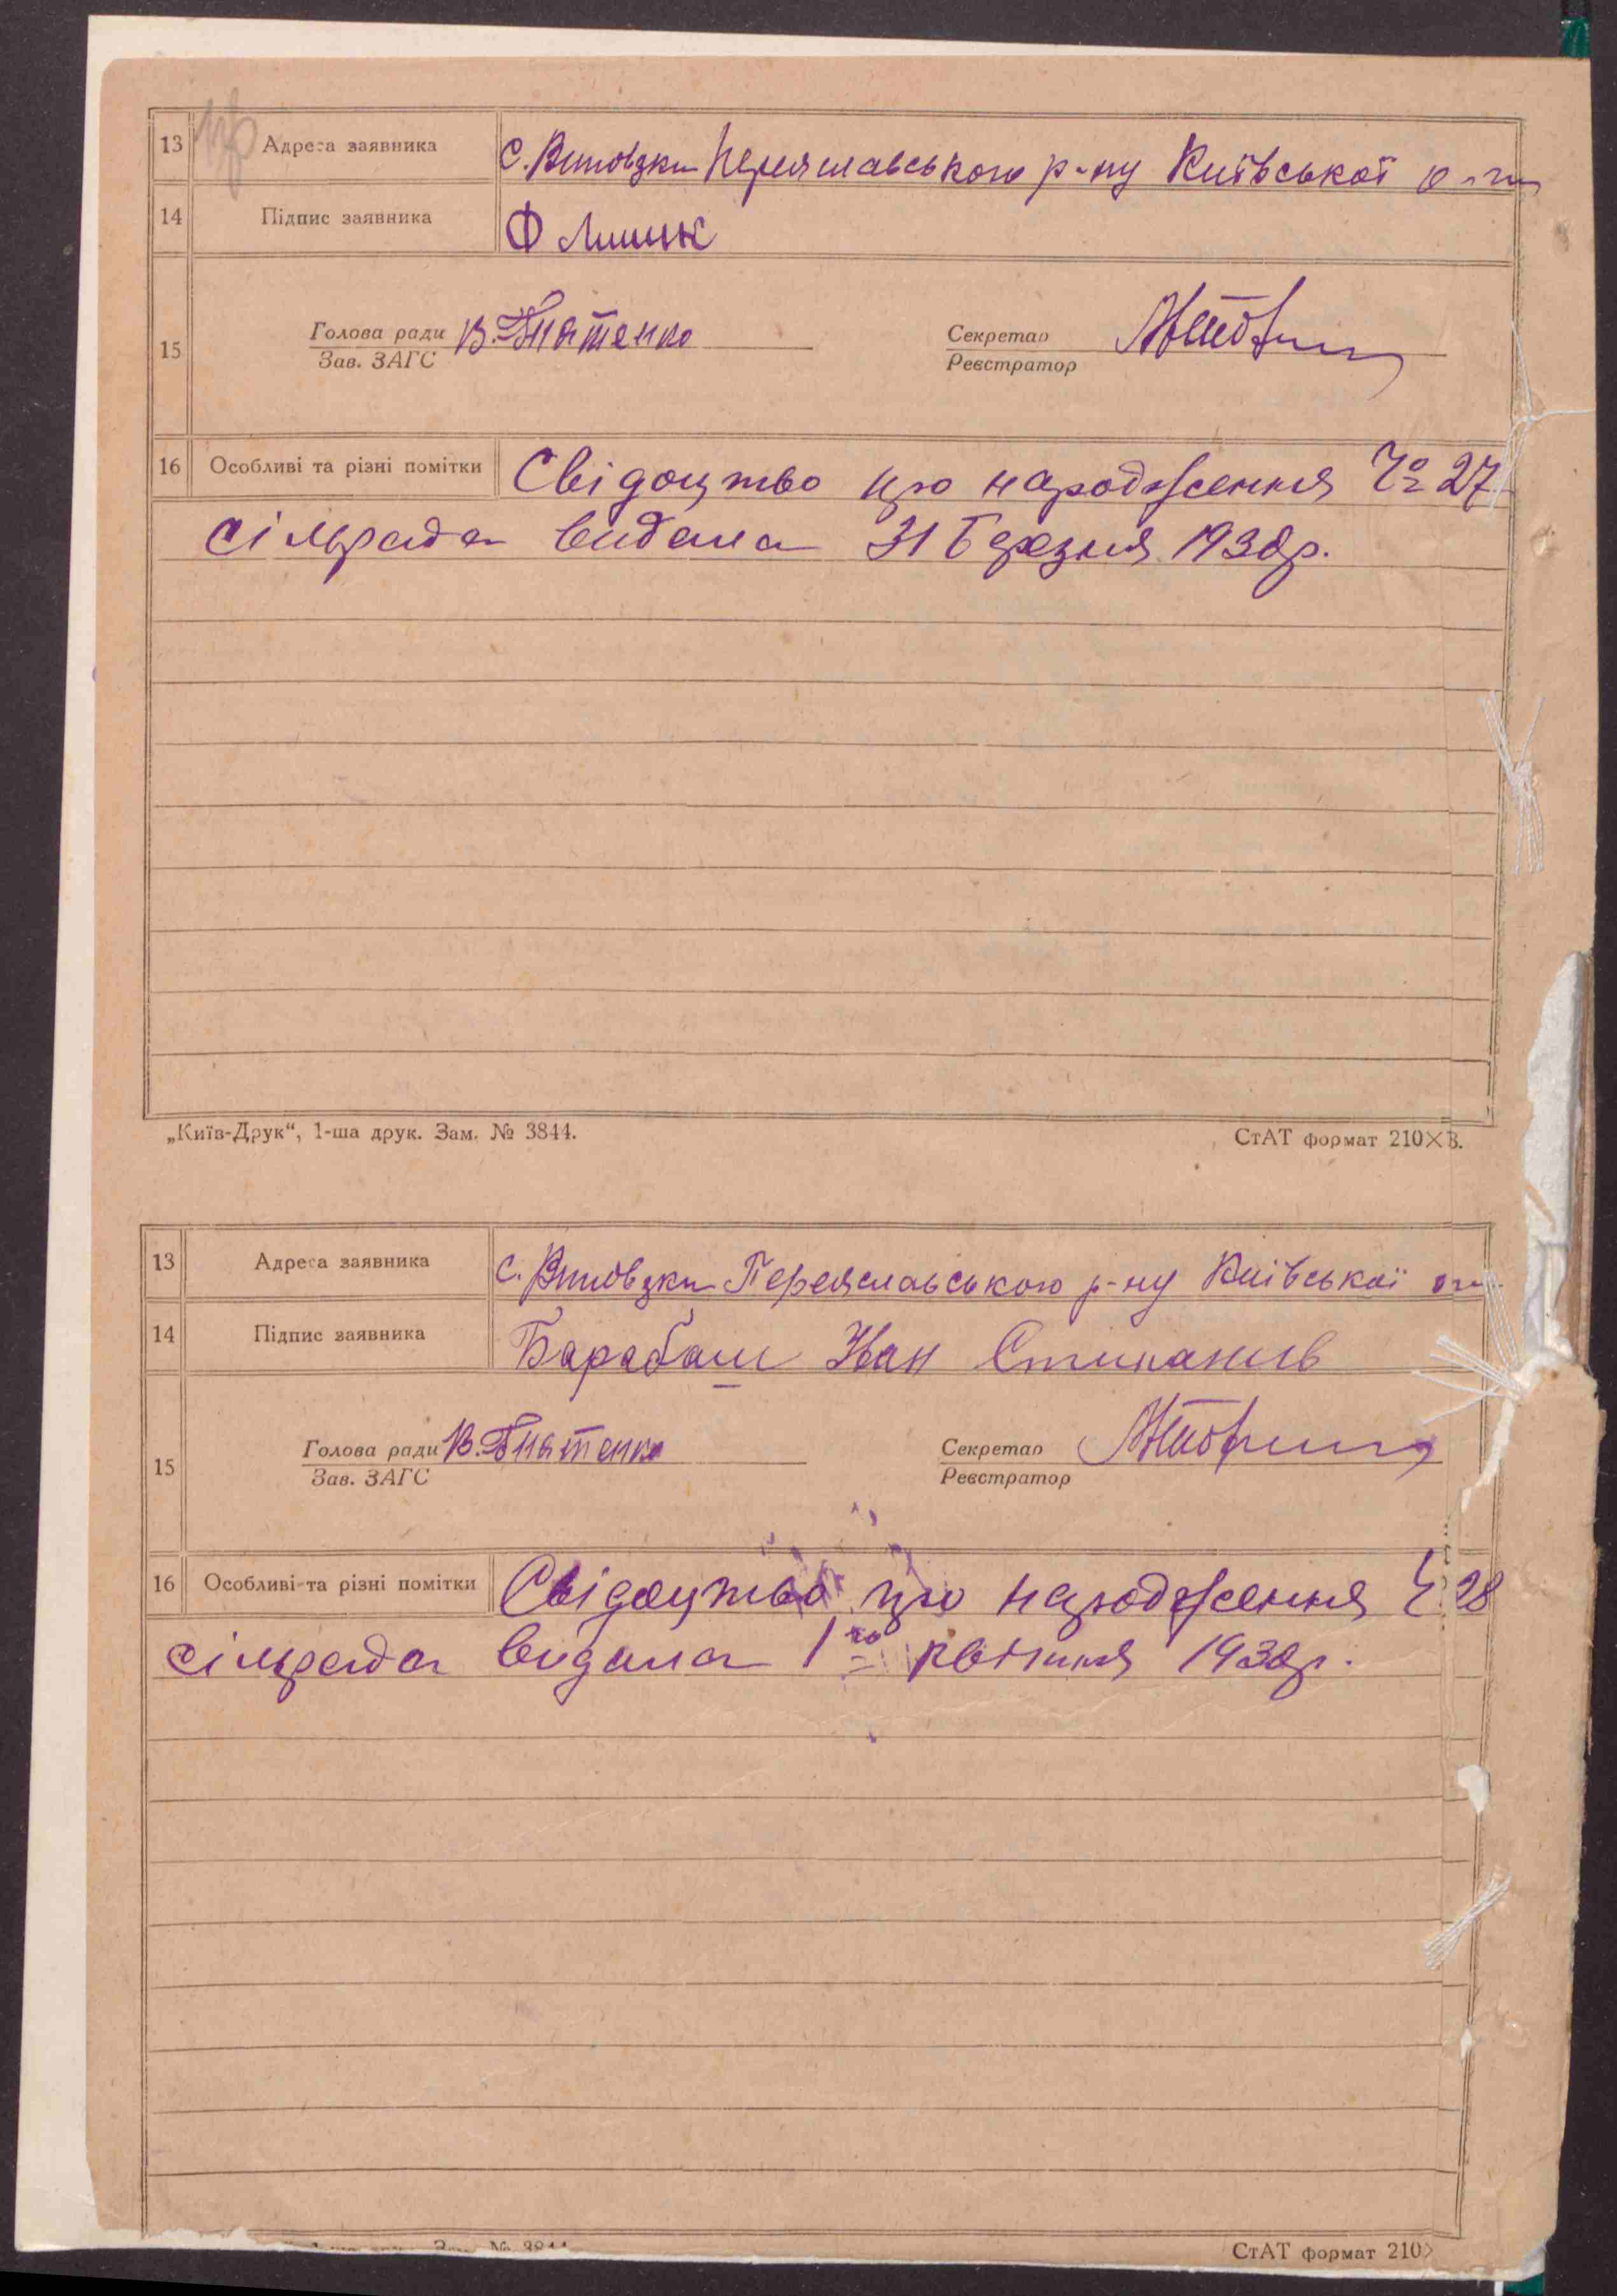 13 Адреса заявника с. Виповзки Переяславського р-ну Київської о-ти
14 Підпис заявника Ф Лишик
15 Голова ради В. Гнатенко Секретар
Зав. ЗАГС Реєстратор
16 Особливі та різні помітки Свідоцтво про народження Ч 27
сільрада видала 31 Березня 1938р.
„Київ-Друк“, 1-ша друк. Зам. № 3844. СтАТ формат 210×В.
13 Адреса заявника с. Виповзки Переяславського р-ну Київської
14 Підпис заявника Барабаш Иван
15 Голова ради В. Гнатенко Секретар
Зав. ЗАГС Реєстратор
16 Особливі та різні помітки Свідоцтво про народження Ч 28
сільрада видала 1го квітня 1938р.
Зам. № 3844 СтАТ формат 210